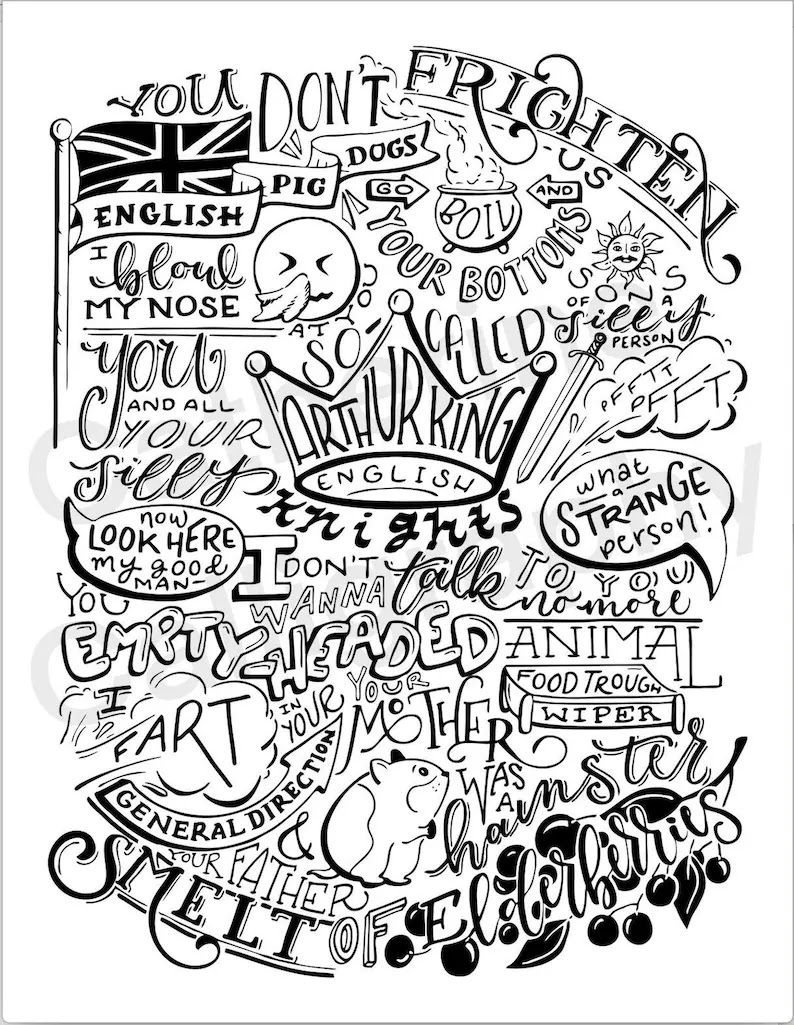 YOU DON'T FRIGHTEN
US
ENGLISH PIG DOGS
GO AND
BOIL
YOUR BOTTOMS
SONS
OF A
silly
PERSON
I
blow
MY NOSE
AT YOU
SO-CALLED
ARTHUR KING
YOU
AND ALL
YOUR
silly
ENGLISH
knights
PFFTT
PFFT
what
a
STRANGE
person!
now
LOOK HERE
my good
MAN-
I DON'T
WANNA talk TO YOU
no more
YOU
EMPTY-HEADED
ANIMAL
FOOD TROUGH
WIPER
I
FART
IN
YOUR
GENERAL DIRECTION
YOUR
MOTHER
WAS
A
hamster
&
YOUR FATHER
SMELT OF Elderberries
Catherine
Calligraphy